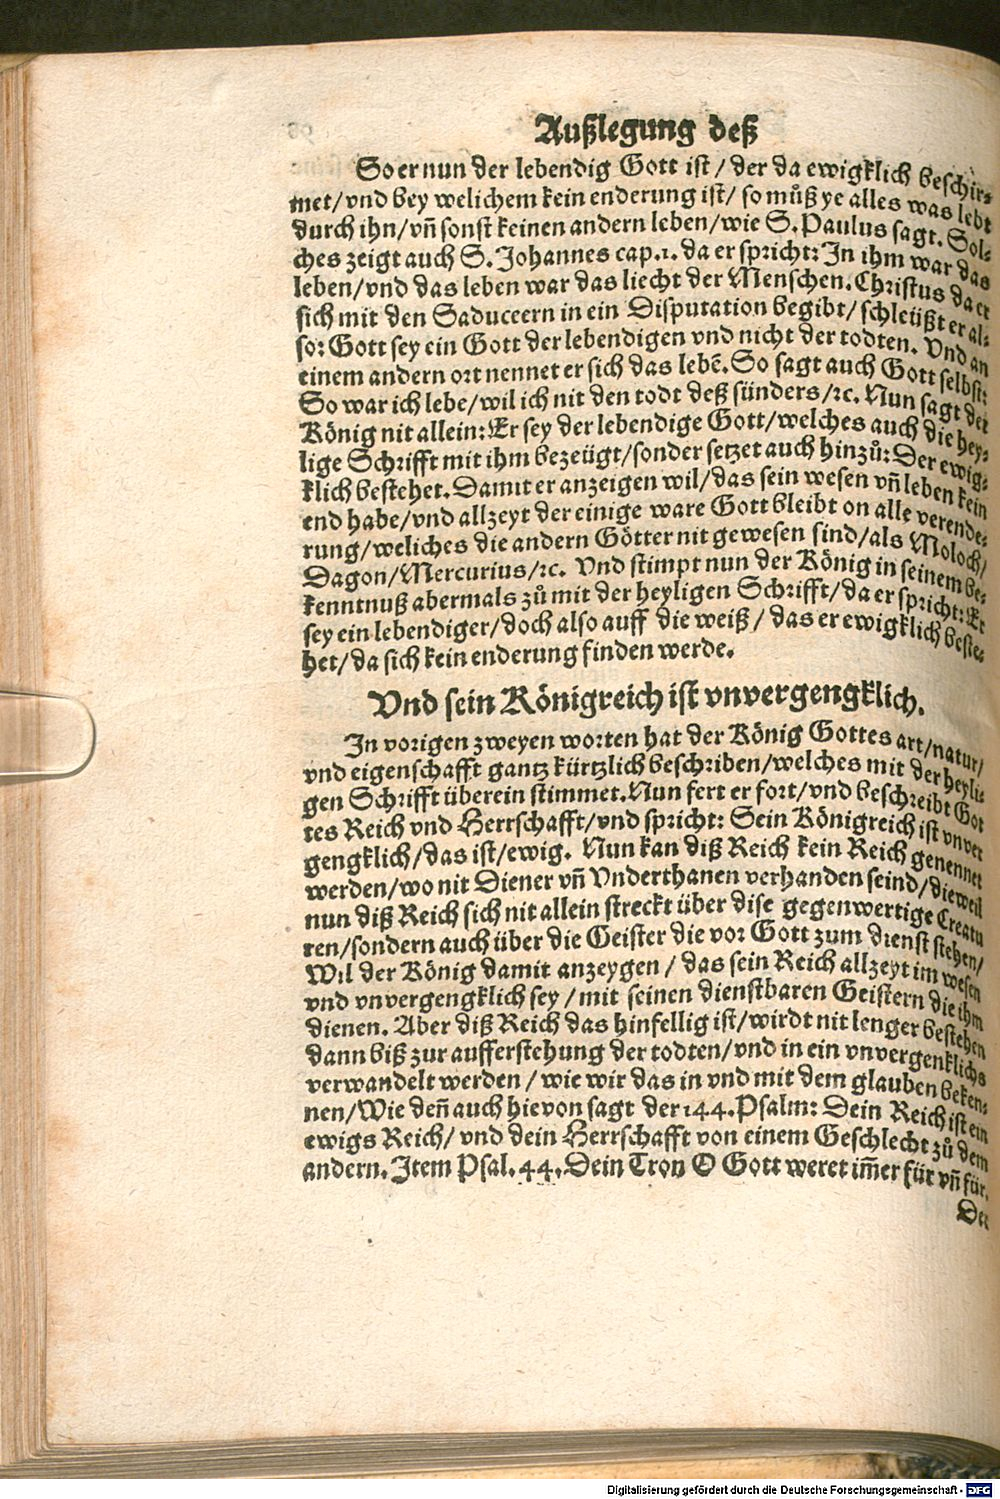 Außlegung deß
So er nun der lebendig Gott ist / der da ewigklich beschir⸗
met / vnd bey welichem kein enderung ist / so můß ye alles was lebt
durch ihn / vñ sonst keinen andern leben / wie S. Paulus sagt. Sol⸗
ches zeigt auch S. Johannes cap.1. da er spricht: In ihm war das
leben / vnd das leben war das liecht der Menschen. Christus da er
sich mit den Saduceern in ein Disputation begibt / schleüßt er al⸗
so: Gott sey ein Gott der lebendigen vnd nicht der todten. Vnd an
einem andern ort nennet er sich das lebẽ. So sagt auch Gott selbst:
So war ich lebe / wil ich nit den todt deß sünders / ꝛc. Nun sagt der
König nit allein: Er sey der lebendige Gott / welches auch die hey⸗
lige Schrifft mit ihm bezeügt / sonder setzet auch hinzů: Der ewig⸗
klich bestehet. Damit er anzeigen wil / das sein wesen vñ leben kein
end habe / vnd allzeyt der einige ware Gott bleibt on alle verende⸗
rung / weliches die andern Götter nit gewesen sind / als Moloch /
Dagon / Mercurius / ꝛc. Vnd stimpt nun der König in seinem be⸗
kenntnuß abermals zů mit der heyligen Schrifft / da er spricht: Er
sey ein lebendiger / doch also auff die weiß / das er ewigklich beste⸗
het / da sich kein enderung finden werde.
Vnd sein Königreich ist vnvergengklich.
In vorigen zweyen worten hat der König Gottes art / natur /
vnd eigenschafft gantz kürtzlich beschriben / welches mit der heyli⸗
gen Schrifft überein stimmet. Nun fert er fort / vnd beschreibt Got
tes Reich vnd Herrschafft / vnd spricht: Sein Königreich ist vnver
gengklich / das ist / ewig. Nun kan diß Reich kein Reich genennet
werden / wo nit Diener vñ Vnderthanen verhanden seind / dieweil
nun diß Reich sich nit allein streckt über dise gegenwertige Creatu
ren / sondern auch über die Geister die vor Gott zum dienst stehen /
Wil der König damit anzeygen / das sein Reich allzeyt im wesen
vnd vnvergengklich sey / mit seinen dienstbaren Geistern die ihm
dienen. Aber diß Reich das hinfellig ist / wirdt nit lenger bestehen
dann biß zur aufferstehung der todten / vnd in ein vnvergenklichs
verwandelt werden / wie wir das in vnd mit dem glauben beken⸗
nen / Wie deñ auch hievon sagt der 144. Psalm: Dein Reich ist ein
ewigs Reich / vnd dein Herrschafft von einem Geschlecht zů dem
andern. Item Psal. 44. Dein Tron O Gott weret im̃er für vñ für.
Der
Digitalisierung gefördert durch die Deutsche Forschungsgemeinschaft - DFG